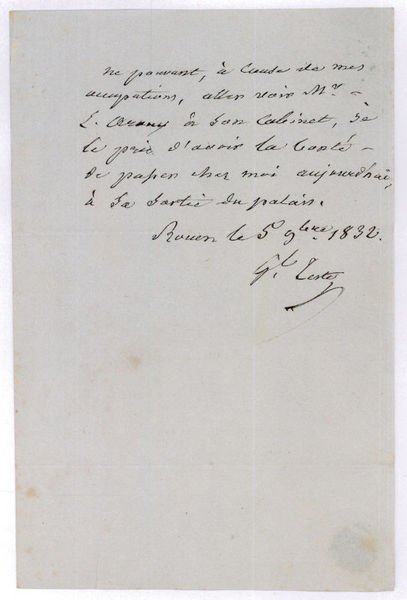 ne pouvant, à cause de mes
occupations, aller voir Mr.
à son Cabinet, je
le prie d'avoir la bonté
de passer chez moi aujourd'hui,
à sa sortie du palais.
Rouen le 5 9bre. 1832.
Gl. Teste